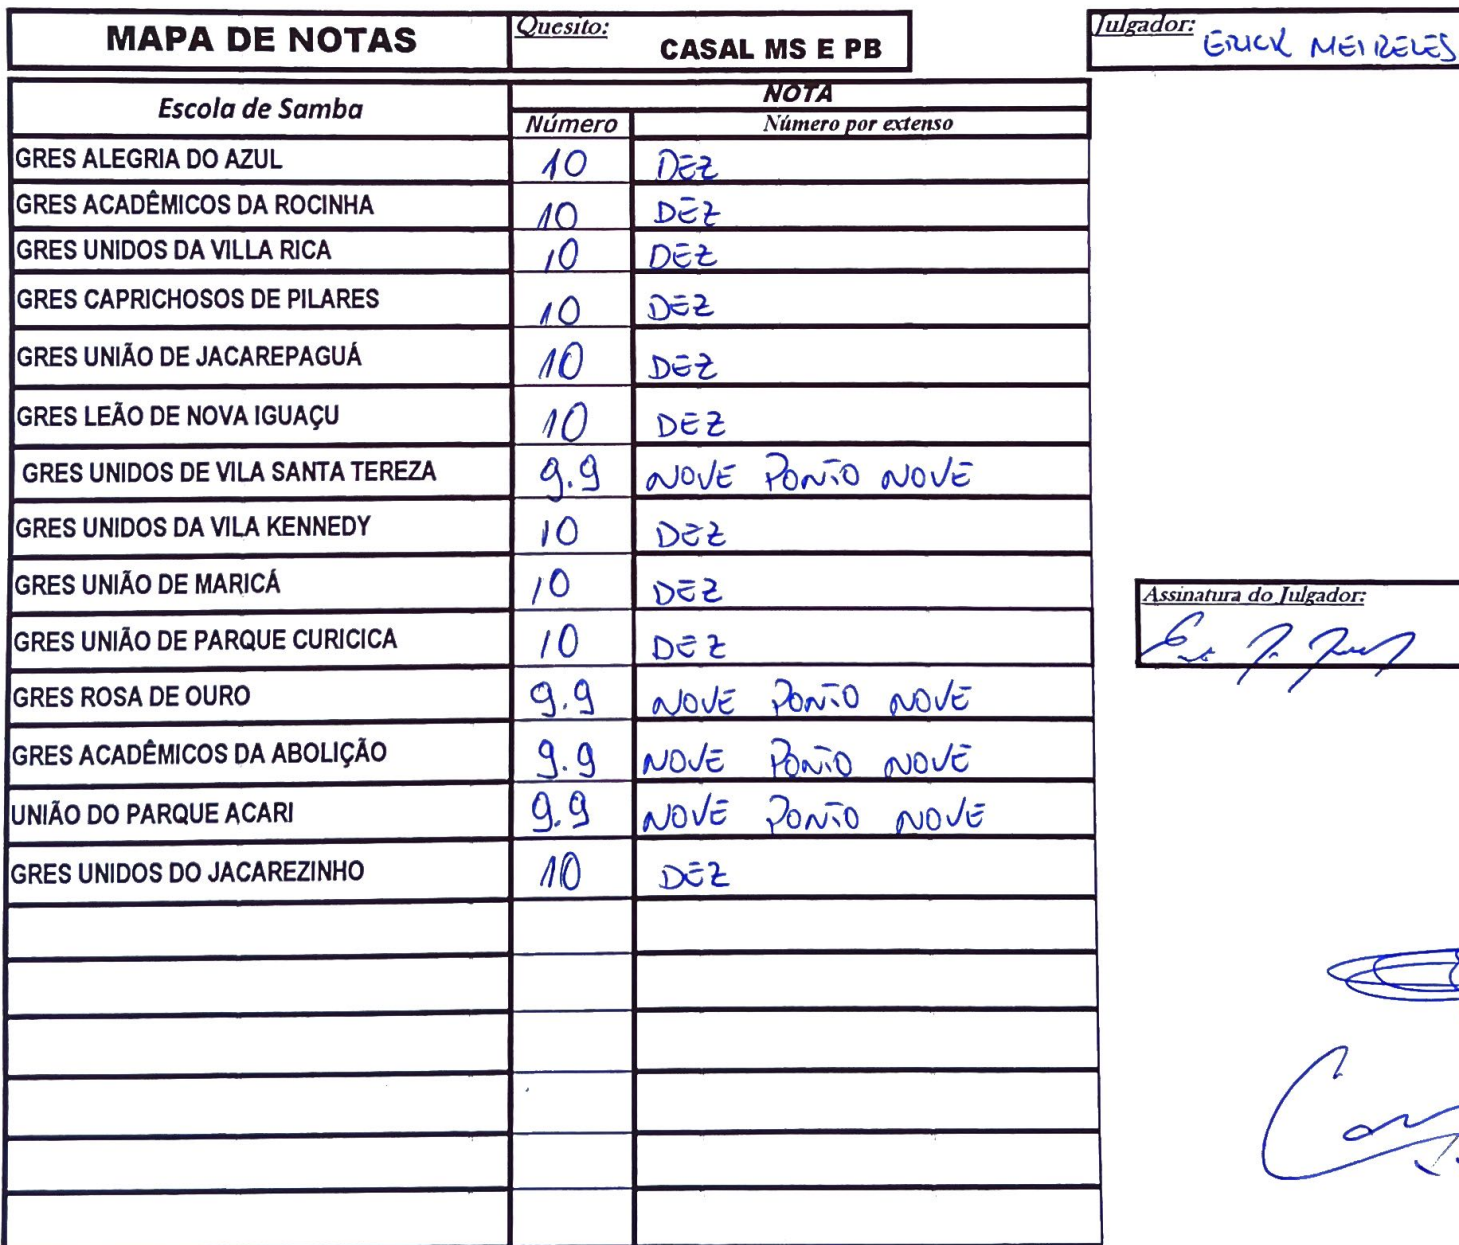 MAPA DE NOTAS
Quesito:
CASAL MS E PB
Julgador: ERICK MEIRELES
Escola de Samba
NOTA
Número
Número por extenso
GRES ALEGRIA DO AZUL 10 DEZ
GRES ACADÊMICOS DA ROCINHA 10 DEZ
GRES UNIDOS DA VILLA RICA 10 DEZ
GRES CAPRICHOSOS DE PILARES 10 DEZ
GRES UNIÃO DE JACAREPAGUÁ 10 DEZ
GRES LEÃO DE NOVA IGUAÇU 10 DEZ
GRES UNIDOS DE VILA SANTA TEREZA 9.9 NOVE PONTO NOVE
GRES UNIDOS DA VILA KENNEDY 10 DEZ
GRES UNIÃO DE MARICÁ 10 DEZ
GRES UNIÃO DE PARQUE CURICICA 10 DEZ
GRES ROSA DE OURO 9.9 NOVE PONTO NOVE
GRES ACADÊMICOS DA ABOLIÇÃO 9.9 NOVE PONTO NOVE
UNIÃO DO PARQUE ACARI 9.9 NOVE PONTO NOVE
GRES UNIDOS DO JACAREZINHO 10 DEZ
Assinatura do Julgador: